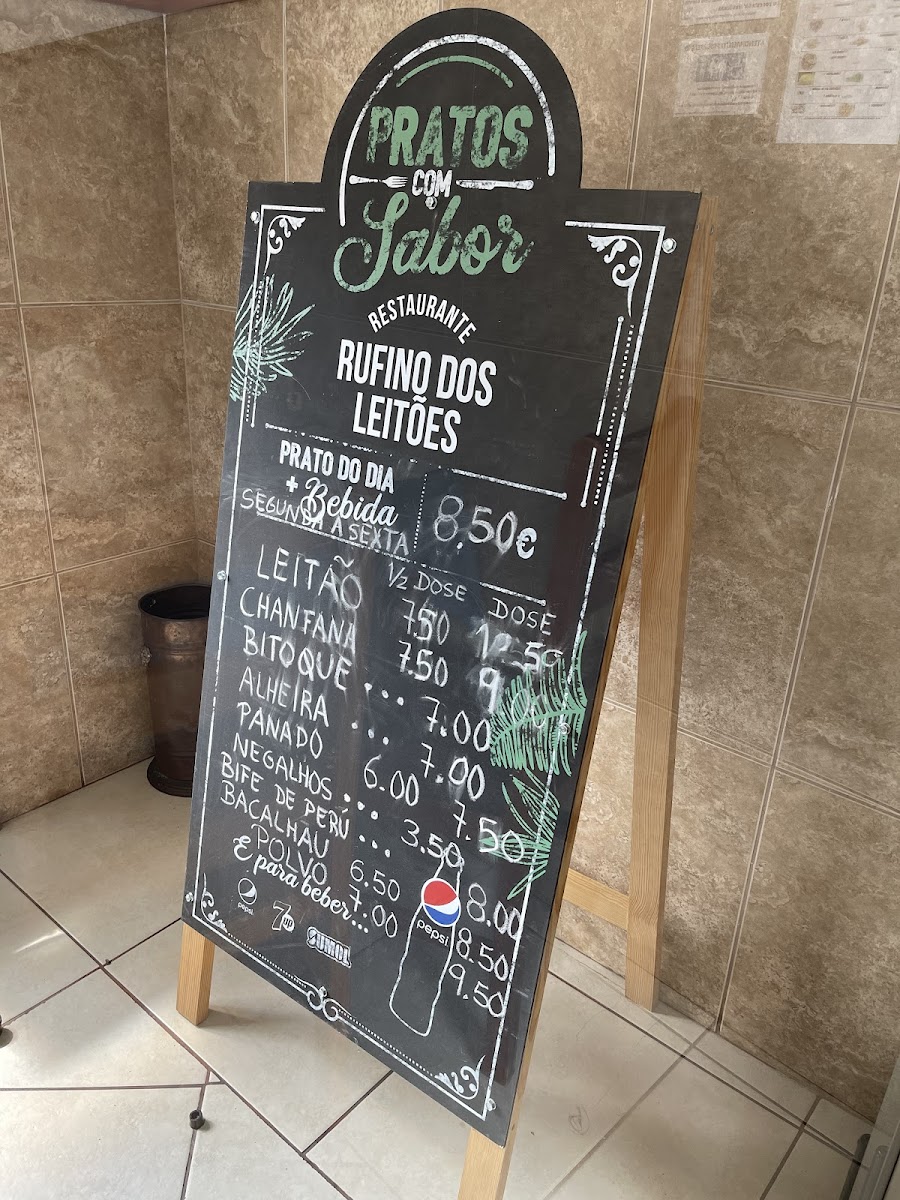 PRATOS
COM
Sabor
RESTAURANTE
RUFINO DOS
LEITÕES
PRATO DO DIA
+ Bebida
SEGUNDA A SEXTA
8.50€
1/2 DOSE DOSE
LEITÃO 7.50 12.50
CHANFANA 7.50 9
BITOQUE ... 7.00
ALHEIRA ... 7.00
PANADO 6.00 7.50
NEGALHOS ... 3.50
BIFE DE PERÚ ... 8.00
BACALHAU 6.50 8.50
POLVO 7.00 9.50
E para beber...
pepsi
7up
SUMOL
pepsi